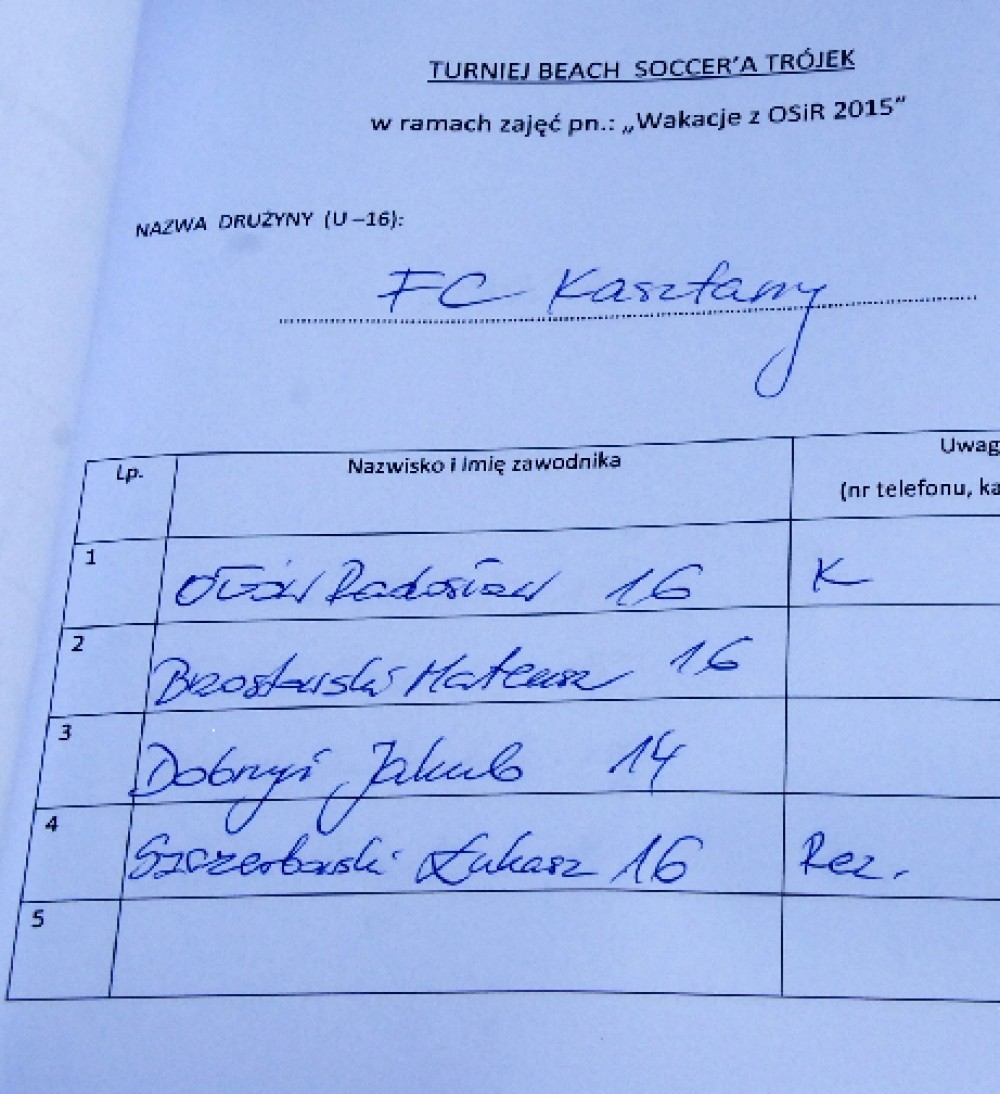 TURNIEJ BEACH SOCCER'A TRÓJEK
w ramach zajęć pn.: „Wakacje z OSiR 2015”
NAZWA DRUŻYNY (U –16):
FC Kasztany
Lp. Nazwisko i Imię zawodnika Uwag
(nr telefonu, ka
1 Radosław 16 K
2 Brostowski Mateusz 16
3 Jakub 14
4 Szczerbowski Łukasz 16 Rez.
5